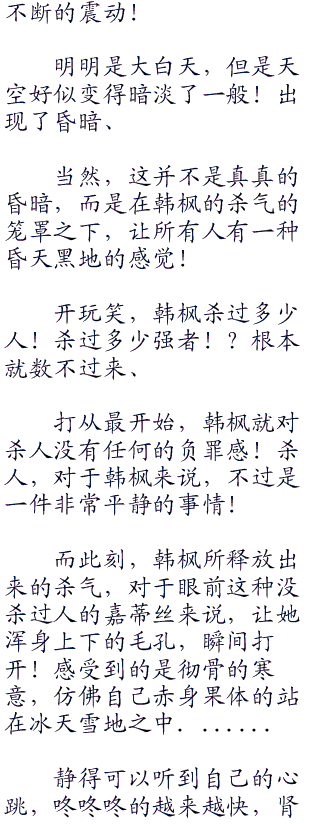 不断的震动！
明明是大白天，但是天
空好似变得暗淡了一般！出
现了昏暗、
当然，这并不是真真的
昏暗，而是在韩枫的杀气的
笼罩之下，让所有人有一种
昏天黑地的感觉！
开玩笑，韩枫杀过多少
人！杀过多少强者！？根本
就数不过来、
打从最开始，韩枫就对
杀人没有任何的负罪感！杀
人，对于韩枫来说，不过是
一件非常平静的事情！
而此刻，韩枫所释放出
来的杀气，对于眼前这种没
杀过人的嘉蒂丝来说，让她
浑身上下的毛孔，瞬间打
开！感受到的是彻骨的寒
意，仿佛自己赤身果体的站
在冰天雪地之中．......
静得可以听到自己的心
跳，咚咚咚的越来越快，肾